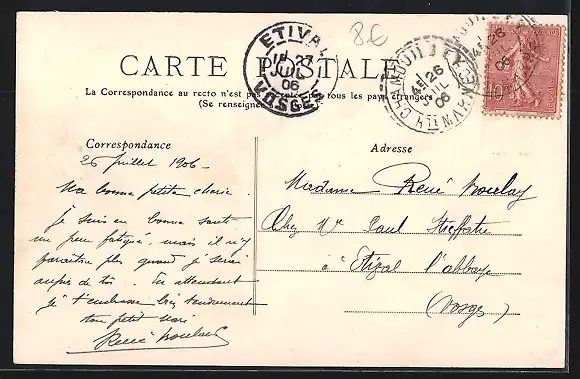 8€
CARTE POSTALE
La Correspondance au recto n'est pas tous les pays étrangers
(Se renseigner à
ETIVAL
27
JUIL
06
VOSGES
26
JUIL
06
HTE MARNE
10
Correspondance
26 Juillet 1906
Ma bonne petite chérie.
je suis en bonne santé
un peu fatigué. mais il n'y
paraîtra plus quand je serai
auprès de toi. En attendant
je t'embrasse bien tendrement
ton petit mari
René
Adresse
Madame René
Chez Mr Paul
à Etival l'abbaye
(Vosges)